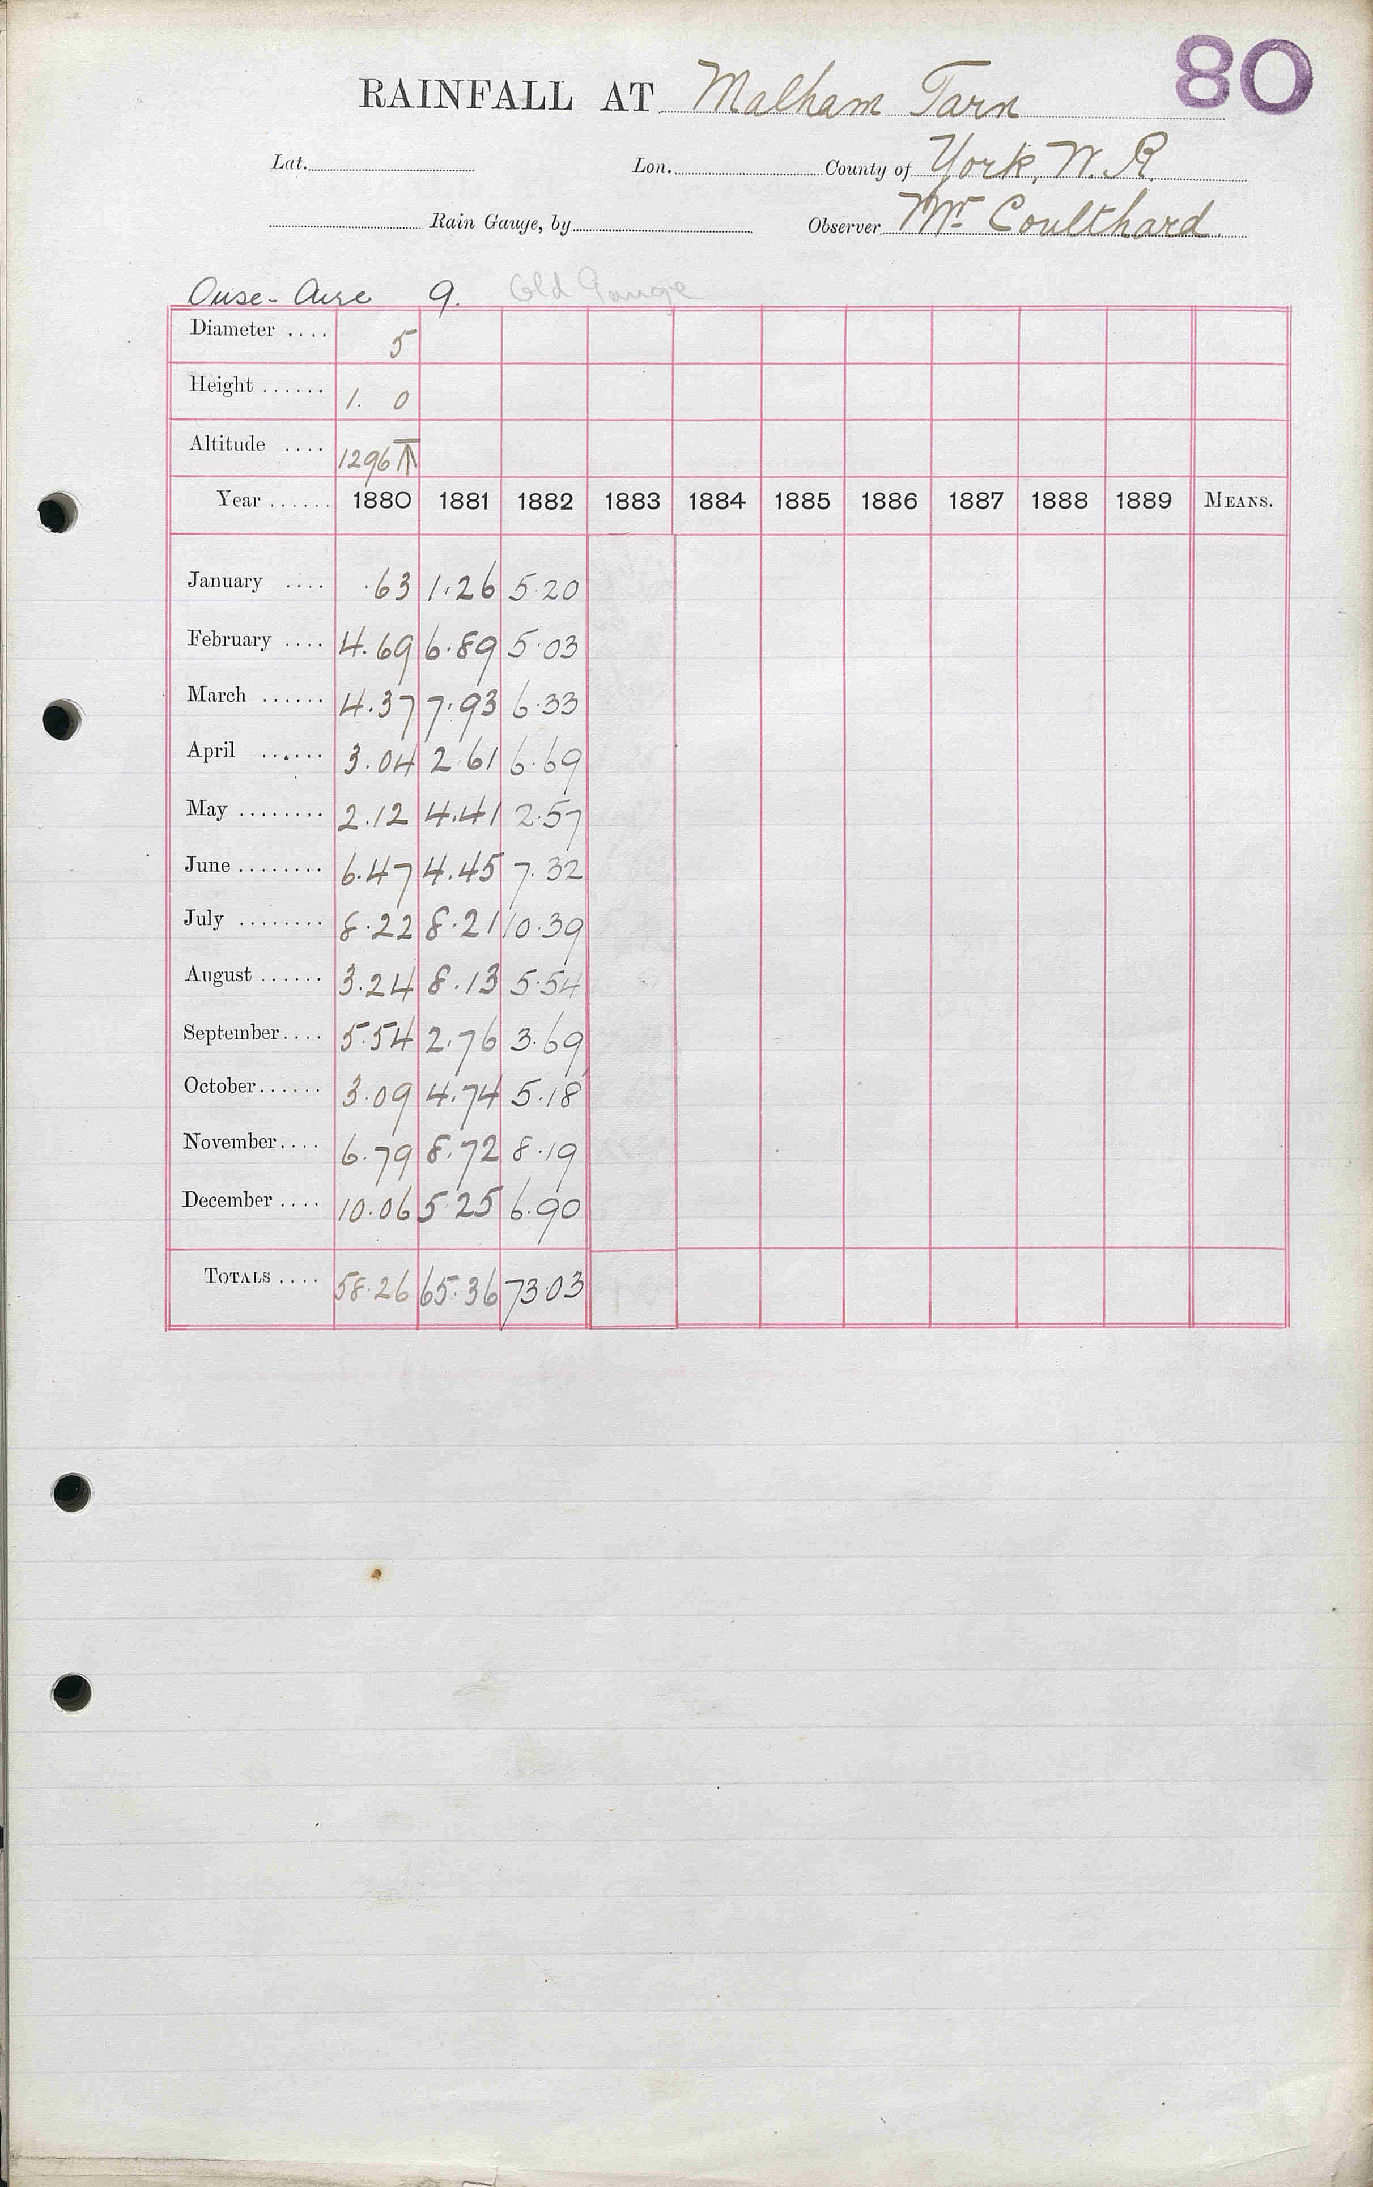 80
RAINFALL AT Malham Tarn
Lat. Lon. County of York, W. R.
Rain Gauge, by Observer Mr. Coulthard.
Ouse-Aire 9. Old Gauge
Diameter .... 5
Height ...... 1. 0
Altitude .... 1296 T
Year ...... 1880 1881 1882 1883 1884 1885 1886 1887 1888 1889 MEANS.
January .... .63 1.26 5.20
February .... 4.69 6.89 5.03
March ...... 4.37 7.93 6.33
April ...... 3.04 2.61 6.69
May ........ 2.12 4.41 2.57
June ........ 6.47 4.45 7.32
July ........ 8.22 8.21 10.39
August ...... 3.24 8.13 5.54
September .... 5.54 2.76 3.69
October ...... 3.09 4.74 5.18
November .... 6.79 8.72 8.19
December .... 10.06 5.25 6.90
TOTALS .... 58.26 65.36 73.03